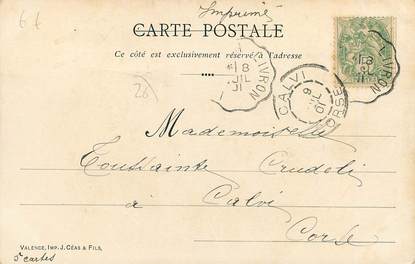 6 f
Imprimé
CARTE POSTALE
Ce côté est exclusivement réservé à l'adresse
LIVRON
8
JIL
LIVRON
8
JIL
CALVI
9
JIL
01
CORSE
26
Mademoiselle
Toussainte Crudeli
à Calvi
Corse
VALENCE, IMP. J. CÉAS & FILS,
5 cartes